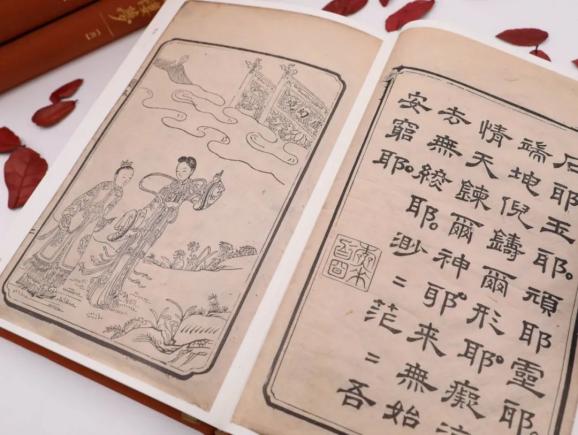 石耶玉耶。頑耶靈耶
端地倪鑄爾形耶。癡
情天鍊爾神耶。来無始
去無終耶。渺〻茫〻吾
安窮耶。
樓夢